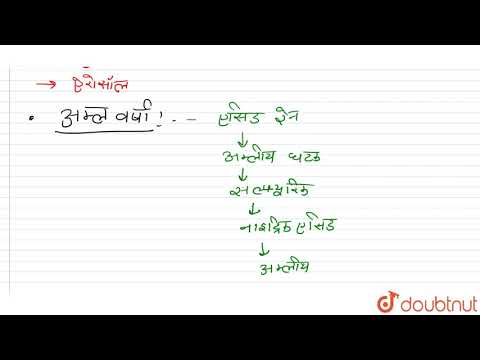 → ऐरोसॉल
• अम्ल वर्षा :- एसिड रेन
↓
अम्लीय घटक
↓
सल्फ्यूरिक
↓
नाइट्रिक एसिड
↓
अम्लीय
doubtnut